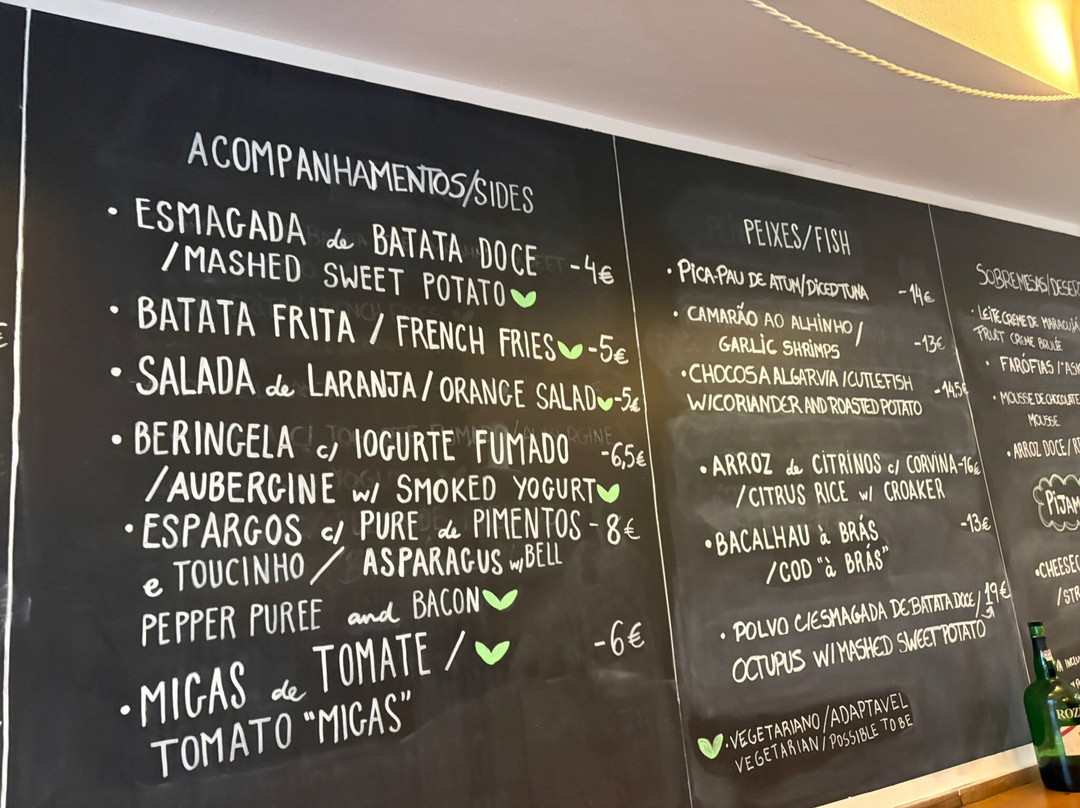 ACOMPANHAMENTOS/SIDES
• ESMAGADA de BATATA DOCE -4€
/MASHED SWEET POTATO
• BATATA FRITA / FRENCH FRIES -5€
• SALADA de LARANJA/ORANGE SALAD -5€
• BERINGELA c/ IOGURTE FUMADO -6,5€
/AUBERGINE w/ SMOKED YOGURT
• ESPARGOS c/ PURE de PIMENTOS - 8€
e TOUCINHO / ASPARAGUS w/BELL
PEPPER PUREE and BACON
• MIGAS de TOMATE / -6€
TOMATO "MIGAS"
PEIXES/FISH
• PICA-PAU DE ATUM/DICED TUNA -14€
• CAMARÃO AO ALHINHO/
GARLIC SHRIMPS -13€
• CHOCOS A ALGARVIA/CUTLEFISH -14,5€
W/CORIANDER AND ROASTED POTATO
• ARROZ de CITRINOS c/ CORVINA-16€
/CITRUS RICE w/ CROAKER
• BACALHAU à BRÁS -13€
/COD "à BRÁS"
• POLVO C/ESMAGADA DE BATATA DOCE/ 19€
OCTUPUS W/MASHED SWEET POTATO
• VEGETARIANO/ADAPTAVEL
VEGETARIAN/POSSIBLE TO BE
SOBREMESAS/DESER
• LEITE CREME DE MARACUJÁ
FRUIT CREME BRULÉE
• FARÓFIAS/"
• MOUSSE DE CHOCOLATE
MOUSSE
• ARROZ DOCE/RI
PIJAM
• CHEESEC
/STR
ROZ